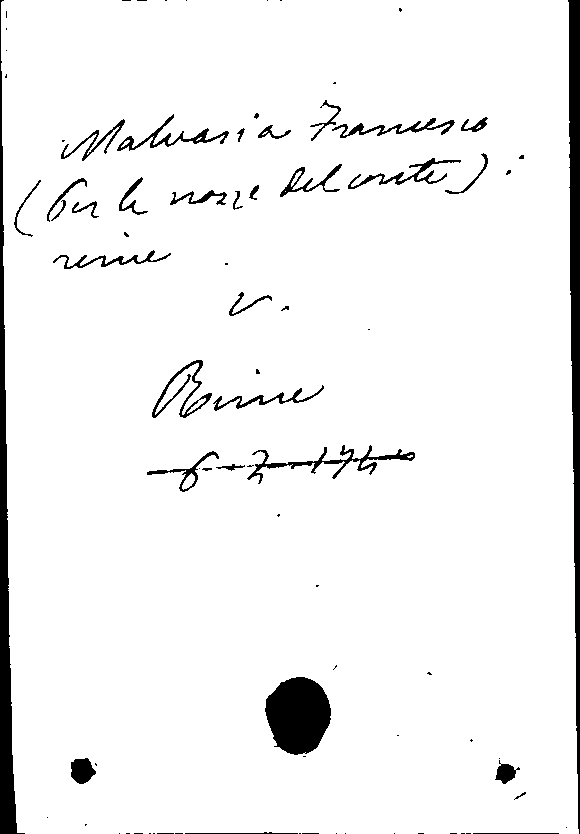 Malvasia Francesco
(Per le nozze del conte):
rime
v.
Rime
6. Z.